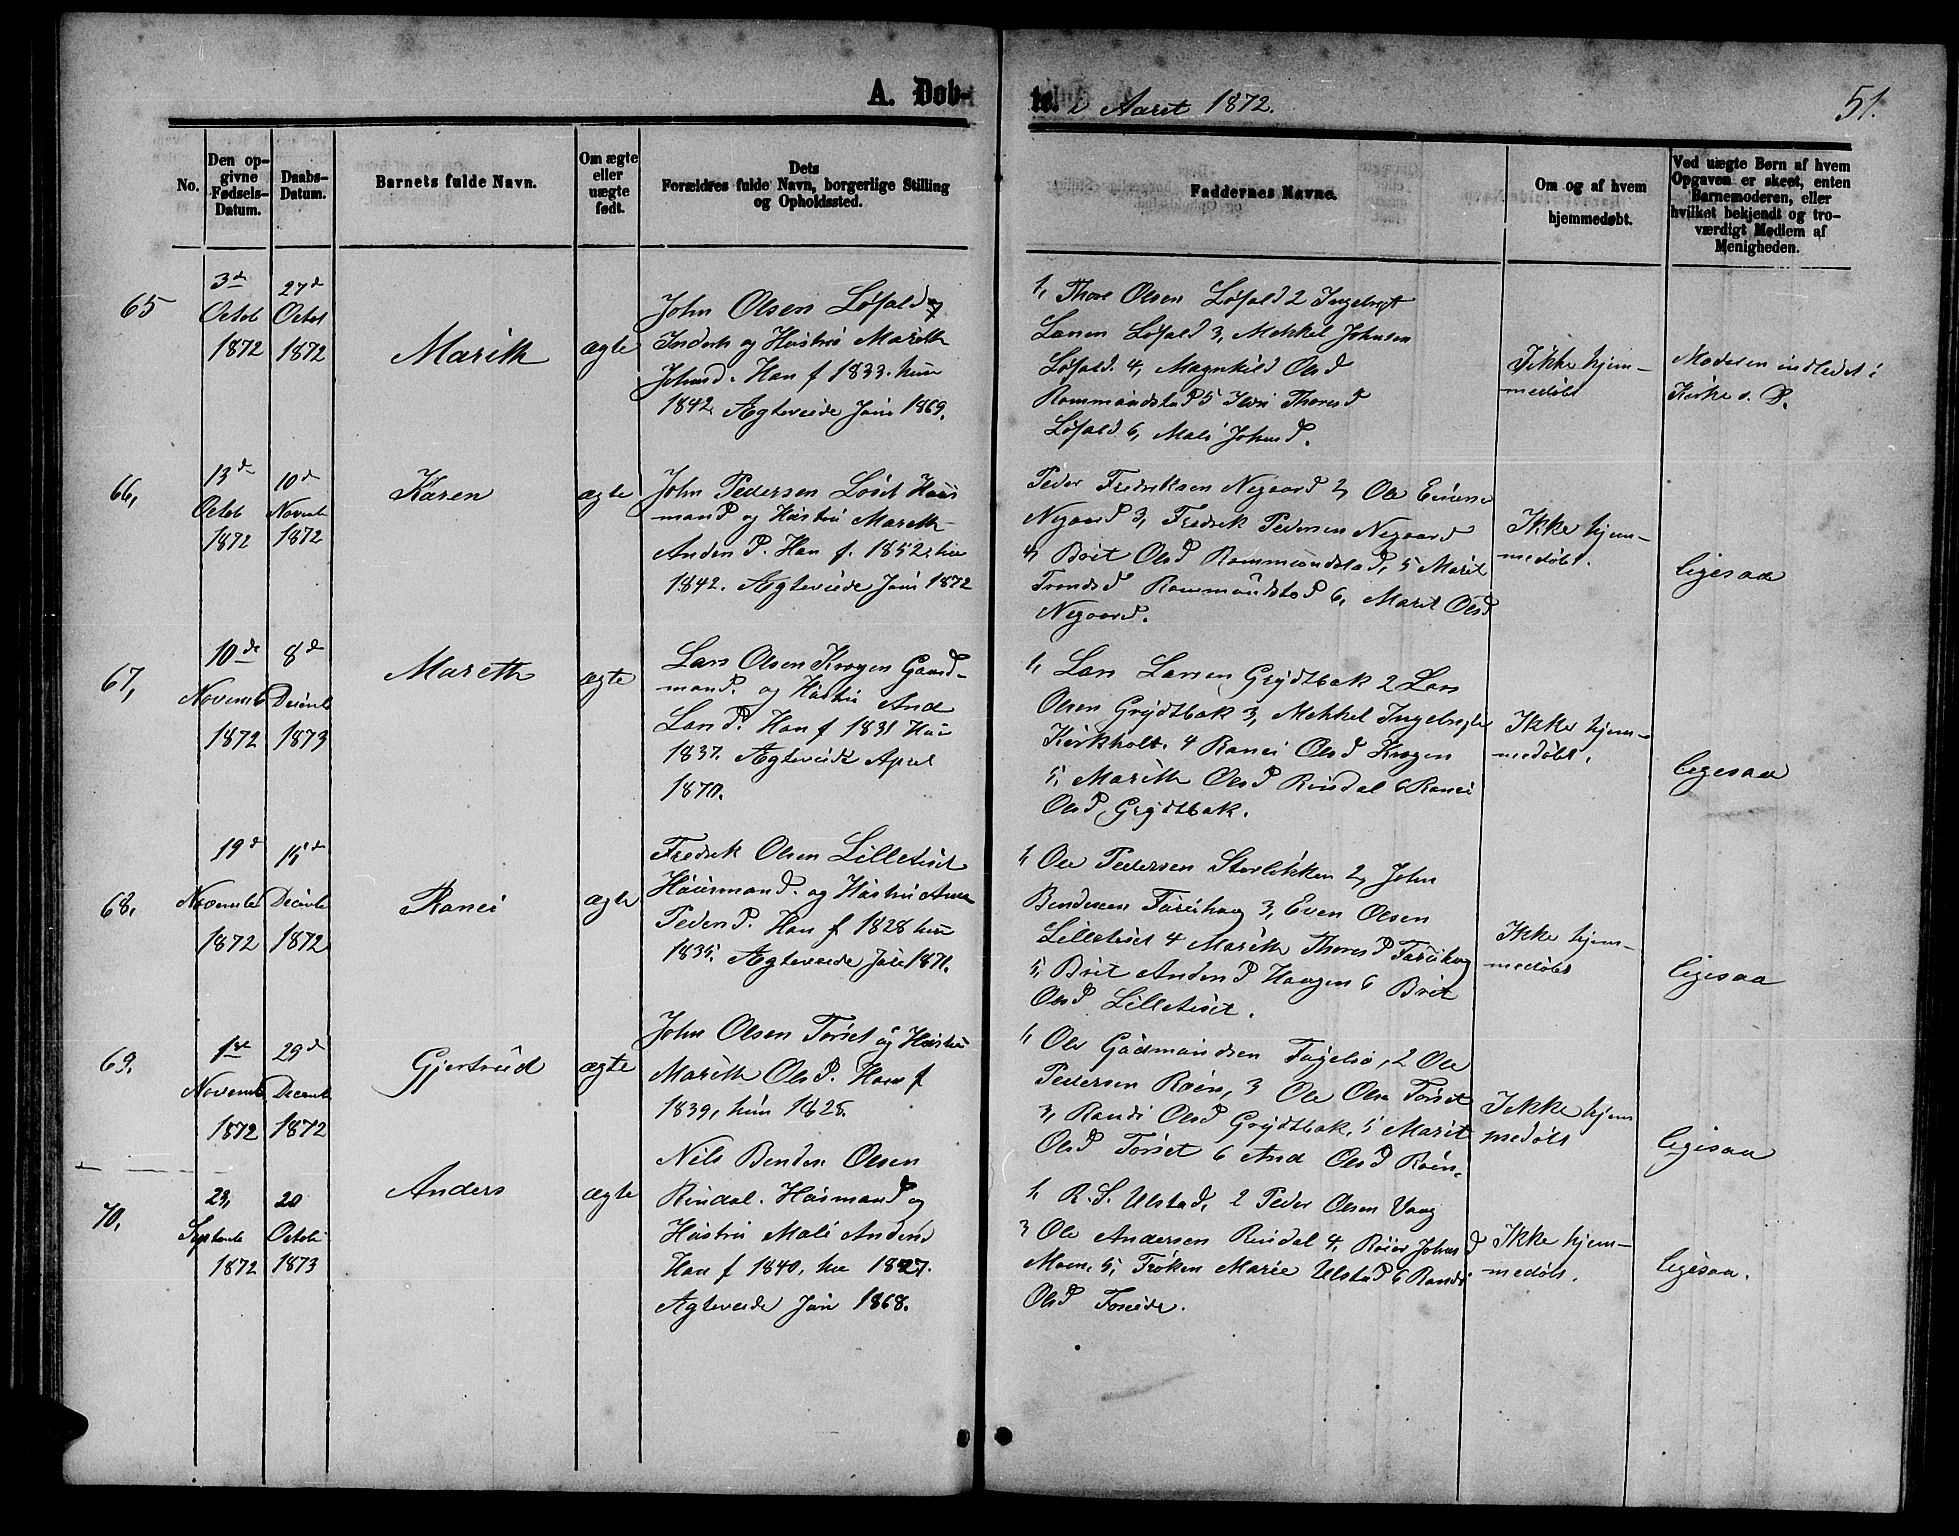 A. Døb-
te. i Aaret 1872.
51.
No.
Den op-
givne
Fødsels-
Datum.
Daabs-
Datum.
Barnets fulde Navn.
Om ægte
eller
uægte
født.
Dets
Forældres fulde Navn, borgerlige Stilling
og Opholdssted.
Faddernes Navne.
Om og af hvem
hjemmedøbt.
Ved uægte Børn af hvem
Opgaven er skeet, enten
Barnemoderen, eller
hvilket bekjendt og tro-
værdigt Medlem af
Menigheden.
65
3d
Octob
1872
27d
Octob
1872
Marith
ægte
John Olsen Løfald
Inderst og Hustru Marith
Johnsd. Han f 1833. hun
1842. Ægteviede Juni 1869.
1, Thore Olsen Løfald 2 Ingebrigt
Larsen Løfald 3, Mekkel Johnsen
Løfald. 4, Magnhild Olsd
Rommundstad 5 Thoresd
Løfald 6, Mali Johnsd.
Ikke hjem-
medøbt
Moderen indledet i
Kirke s. D.
66,
13d
Octob
1872
10d
Novemb
1872
Karen
ægte
John Pedersen Løset Huus
mand og Hustru Marith
Andersd. Han f. 1852, hun
1842. Ægteviede Juni 1872
Peder Fredriksen Negaard 2, Ole Evensen
Negaard 3, Fredrik Pedersen Negaard
4, Brit Olsd Rommundstad, 5 Marit
Trondsd Rommundstad 6, Marit Olsd
Negaard.
Ikke hjem-
medøbt.
ligesaa
67,
10de
Novemb
1872
8d
Decemb
1873
Marith
ægte
Lars Olsen Krogen Gaard-
mand. og Hustru And
Larsd. Han f 1831 Hun
1837. Ægteviede April
1870.
1, Lars Larsen Grydtbak 2 Lars
Olsen Grydtbak 3, Mekkel Ingebrigts
Kirkholt. 4 Ranei Olsd Krogen
5, Marith Olsd Rindal 6 Ranei
Olsd Grydtbak.
Ikke hjem-
medøbt.
ligesaa
68.
19d
Novemb
1872
15d
Decemb
1872
Ranei
ægte
Fredrik Olsen Lilletiset
Huusmand. og Hustru Ane
Pedersd. Han f 1828 hun
1835. Ægteviede Juli 1871.
1, Ole Pedersen Storløkken 2, John
Bendiksen 3, Even Olsen
Lilletiset 4 Marith Thoresd
5, Brit Andersd Haugen 6 Brit
Olsd Lilletiset.
Ikke hjem-
medøbt
ligesaa
69.
1ste
Novemb
1872
29d
Decemb
1872
Gjertrud
ægte
John Olsen Torset og Hustru
Marith Olsd. Han f
1839, hun 1828.
1, Ole Gudmundsen Fugelsø, 2 Ole
Pedersen Røen, 3 Ole Olsen Torset
3, Randi Olsd Grydtbak, 5 Marit
Olsd Torset 6 And Olsd Røen.
Ikke hjem
medøbt
ligesaa
70.
23,
Septemb
1872
20
Octob
1873
Anders
ægte
Nils Bendix Olsen
Rindal. Huusmand og
Hustru Mali Andersd
Han f 1840, hun 1827.
Ægteviede Juni 1868.
1, R. S. Ulstad, 2 Peder Olsen Vaag
3 Ole Andersen Rindal 4, Johnsd
Moen. 5, Frøken Marie Ulstad 6 Randi
Olsd
Ikke hjem-
medøbt.
ligesaa.